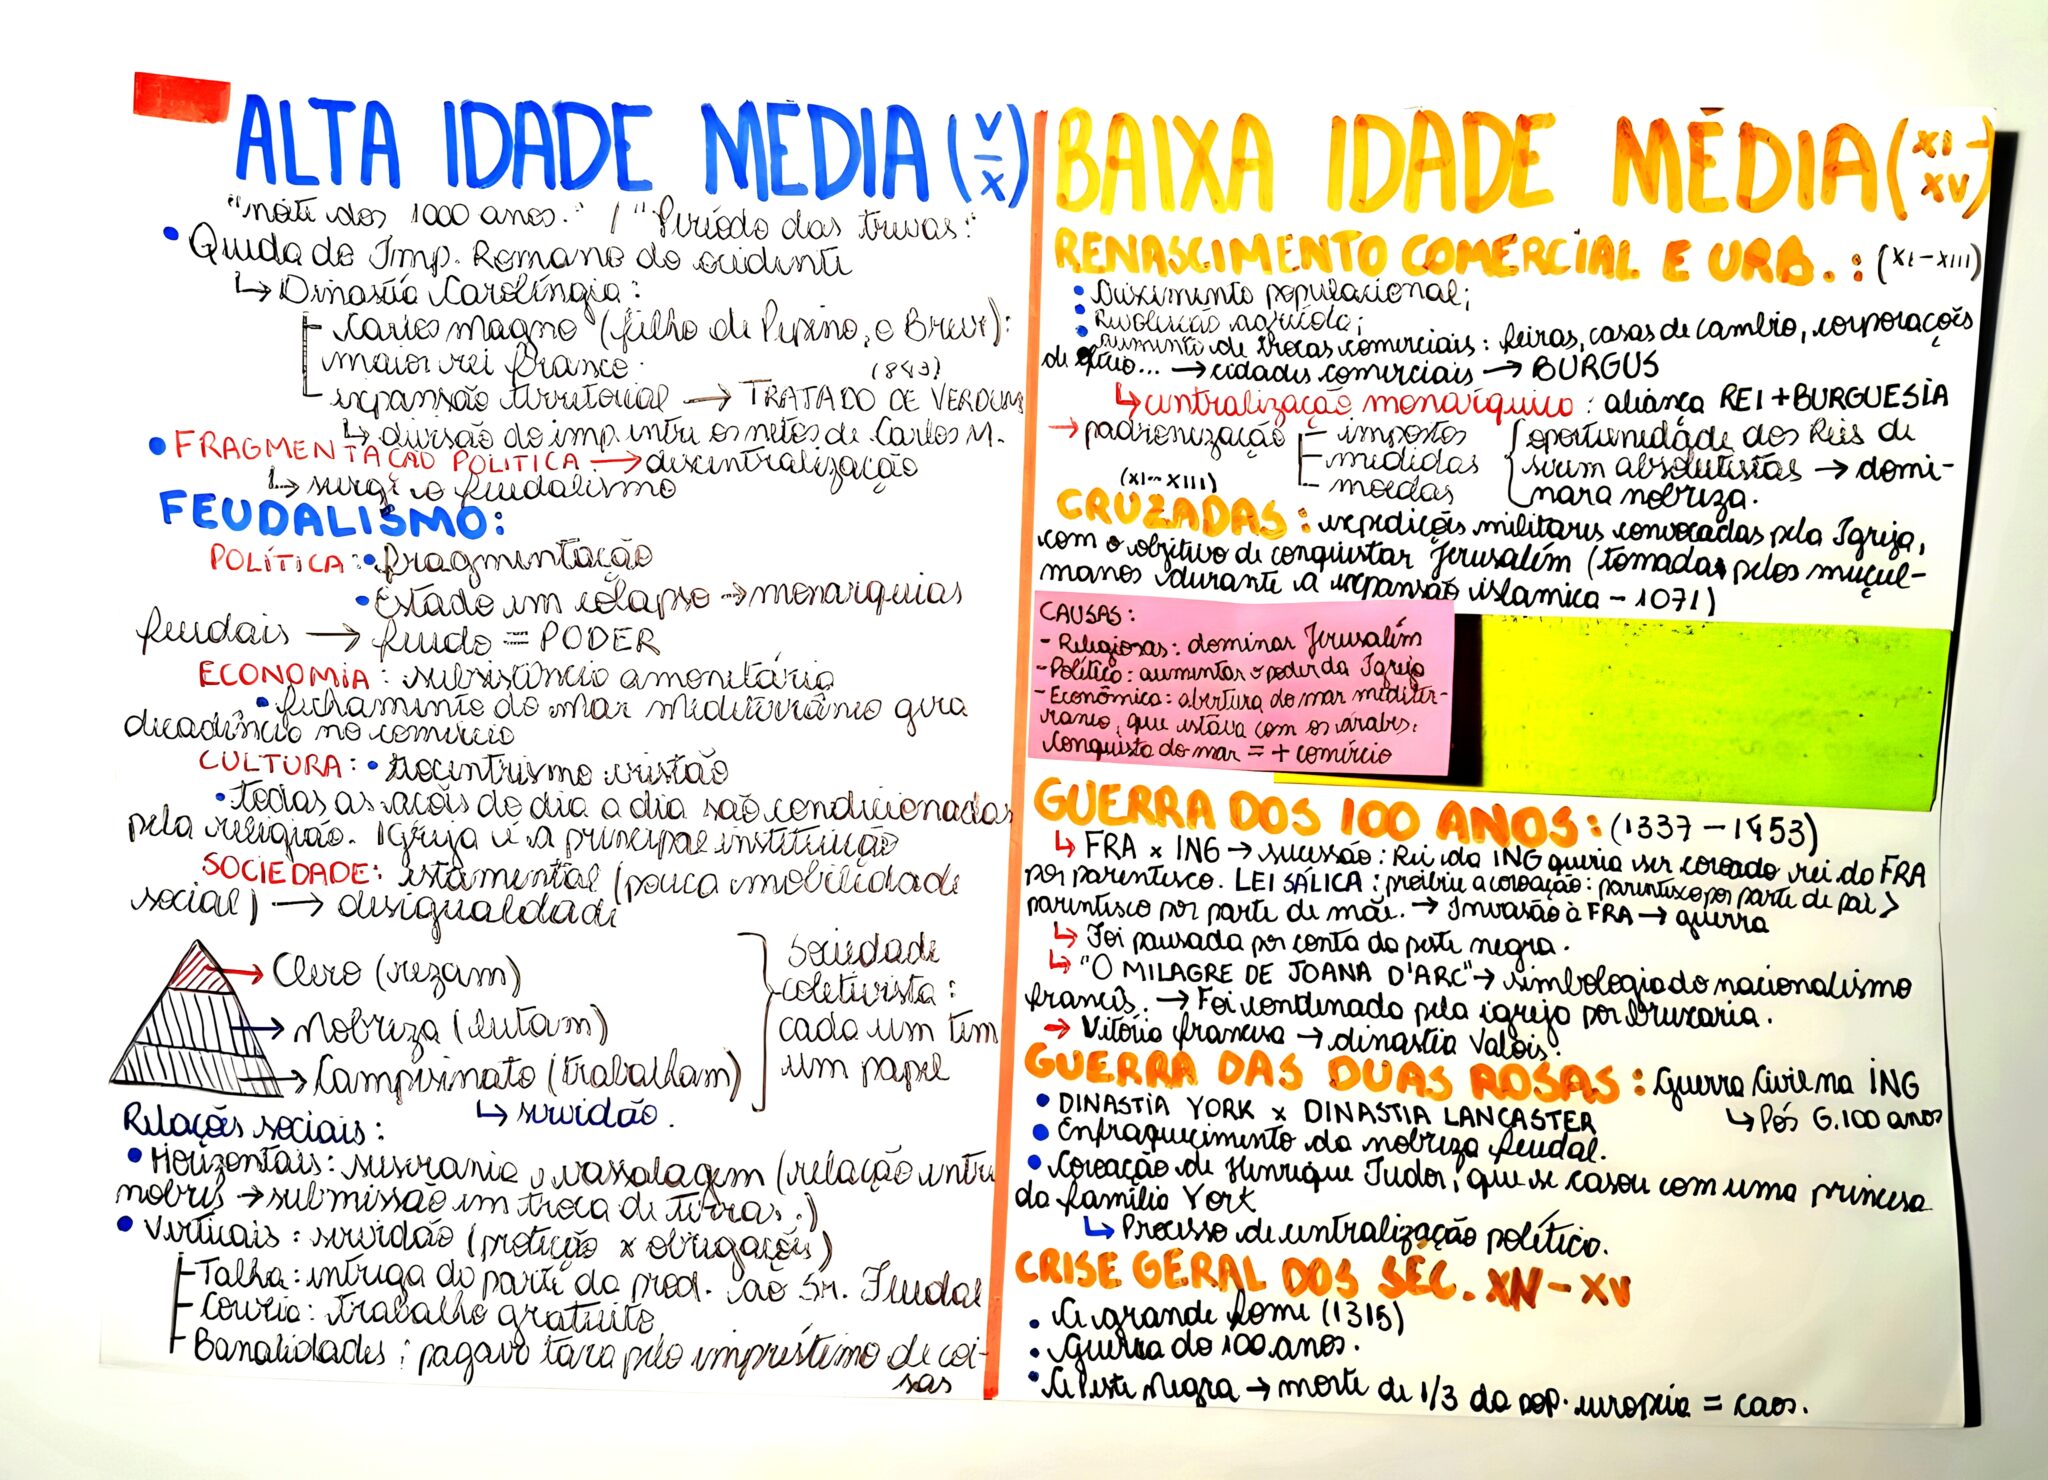 ALTA IDADE MÉDIA (V - X)
"noite dos 1000 anos." / "Período das trevas."
• Queda do Imp. Romano do ocidente
↳ Dinastia Carolíngia:
Carlos magno (filho de Pepino, o Breve):
maior rei franco.
(843)
expansão territorial → TRATADO DE VERDUM
↳ divisão do imp. entre os netos de Carlos M.
• FRAGMENTAÇÃO POLÍTICA → descentralização
↳ surge o feudalismo
FEUDALISMO:
POLÍTICA: • fragmentação
• Estado em colapso → monarquias
feudais → feudo = PODER
ECONOMIA: subsistência amonetária
• fechamento do mar mediterrâneo gera
decadência no comércio
CULTURA: • teocentrismo cristão
• todas as ações do dia a dia são condicionadas
pela religião. Igreja é a principal instituição
SOCIEDADE: estamental (pouca mobilidade
social) → desigualdade
→ Clero (rezam)
→ Nobreza (lutam)
→ Campesinato (trabalham)
↳ servidão.
Sociedade
coletivista:
cada um tem
um papel
Relações sociais:
• Horizontais: suserania e vassalagem (relação entre
nobres → submissão em troca de terras.)
• Verticais: servidão (proteção x obrigações)
Talha: entrega da parte da prod. ao Sr. Feudal
Corveia: trabalho gratuito
Banalidades: pagava taxa pelo empréstimo de coi-
sas
BAIXA IDADE MÉDIA (XI - XV)
RENASCIMENTO COMERCIAL E URB.: (XI-XIII)
• Crescimento populacional;
• Revolução agrícola;
• aumento de trocas comerciais: feiras, casas de cambio, corporações
de ofício... → cidades comerciais → BURGUS
↳ centralização monárquica: aliança REI + BURGUESIA
→ padronização
impostos
medidas
moedas
oportunidade dos Reis de
serem absolutistas → domi-
nar a nobreza.
(XI-XIII)
CRUZADAS: expedições militares convocadas pela Igreja,
com o objetivo de conquistar Jerusalém (tomadas pelos muçul-
manos durante a expansão islamica - 1071)
CAUSAS:
- Religiosas: dominar Jerusalém
- Político: aumentar o poder da Igreja
- Econômica: abertura do mar mediter-
râneo, que estava com os árabes.
Conquista do mar = + comércio
GUERRA DOS 100 ANOS: (1337-1453)
↳ FRA x ING → sucessão: Rei da ING queria ser coroado rei da FRA
por parentesco. LEI SÁLICA: proibiu a coroação: parentesco por parte de pai >
parentesco por parte de mãe. → Invasão à FRA → guerra
↳ Foi pausada por conta da peste negra.
↳ "O MILAGRE DE JOANA D'ARC" → simbologia do nacionalismo
francês. → Foi condenada pela igreja por bruxaria.
→ Vitória francesa → dinastia Valois.
GUERRA DAS DUAS ROSAS: Guerra Civil na ING
↳ Pós G. 100 anos
• DINASTIA YORK x DINASTIA LANCASTER
• Enfraquecimento da nobreza feudal.
• Coroação de Henrique Tudor, que se casou com uma princesa
da família York
↳ Processo de centralização político.
CRISE GERAL DOS SÉC. XIV-XV
• A grande fome (1315)
• Guerra do 100 anos.
• A Peste Negra → morte de 1/3 da pop. europeia = caos.